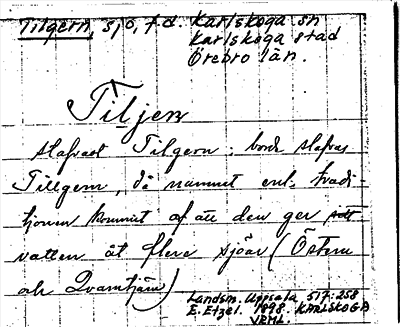 Tilgern, sjö, f.d. Karlskoga sn
Karlskoga stad
Örebro län.
Tiljen
stafvast Tilgern; borde stafvas
Tillgern, då namnet enl. tradi-
tjonen kommit af att den ger sitt
vatten åt flere sjöar (Östern
och Qvarntjärn)
Landsm. Uppsala 517:258
E. Etzel. 1898. KARLSKOGA
VRML